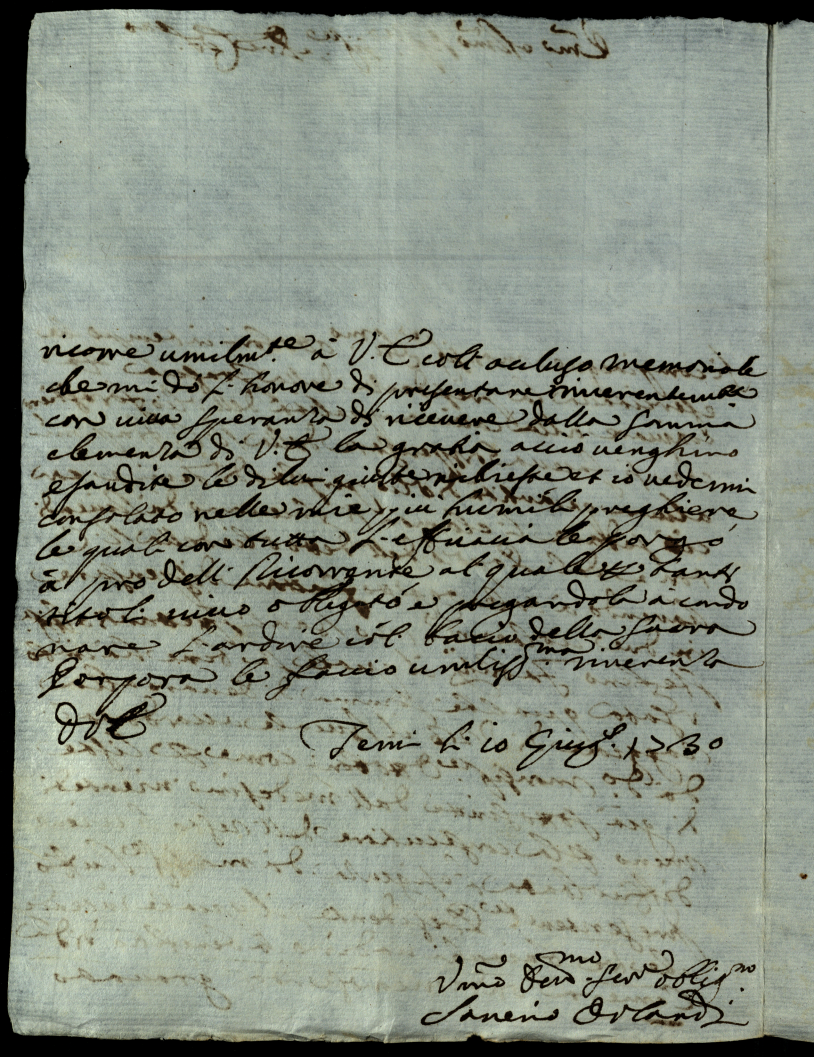 ricorre umilm.te à V. E coll acluso memoriale
che mi dò l'honore di presentare riverentem.te
con viva speranza di ricevere dalla somma
clemenza di V. E la grazia acciò venghino
esaudite le di lui giuste richieste et io vedermi
consolato nelle mie più humili preghiere
le quali con tutta l'efficacia le porgo
à pro dell Ricorrente al quale tanti
titoli vivo obligato e pregandola à condo
nare l'ardire col bacio della sacra
Porpora le faccio umiliss.ma riverenza
Di V E
Terni li 10 Giug. 1730
Vmo Devmo Serv obligmo
Saverio Orlandi